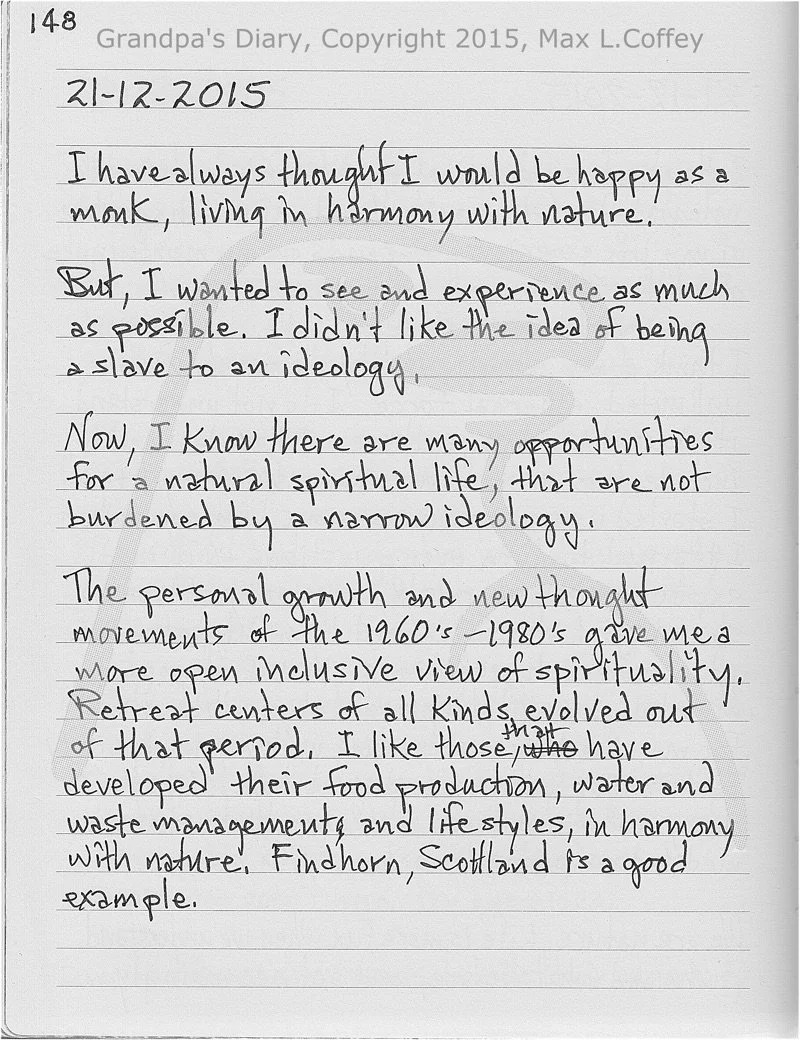 148
Grandpa's Diary, Copyright 2015, Max L.Coffey
21-12-2015
I have always thought I would be happy as a
monk, living in harmony with nature.
But, I wanted to see and experience as much
as possible. I didn't like the idea of being
a slave to an ideology.
Now, I know there are many opportunities
for a natural spiritual life, that are not
burdened by a narrow ideology.
The personal growth and new thought
movements of the 1960's-1980's gave me a
more open inclusive view of spirituality.
Retreat centers of all kinds, evolved out
that
of that period. I like those, who have
developed their food production, water and
waste management, and lifestyles, in harmony
with nature. Findhorn, Scottland is a good
example.